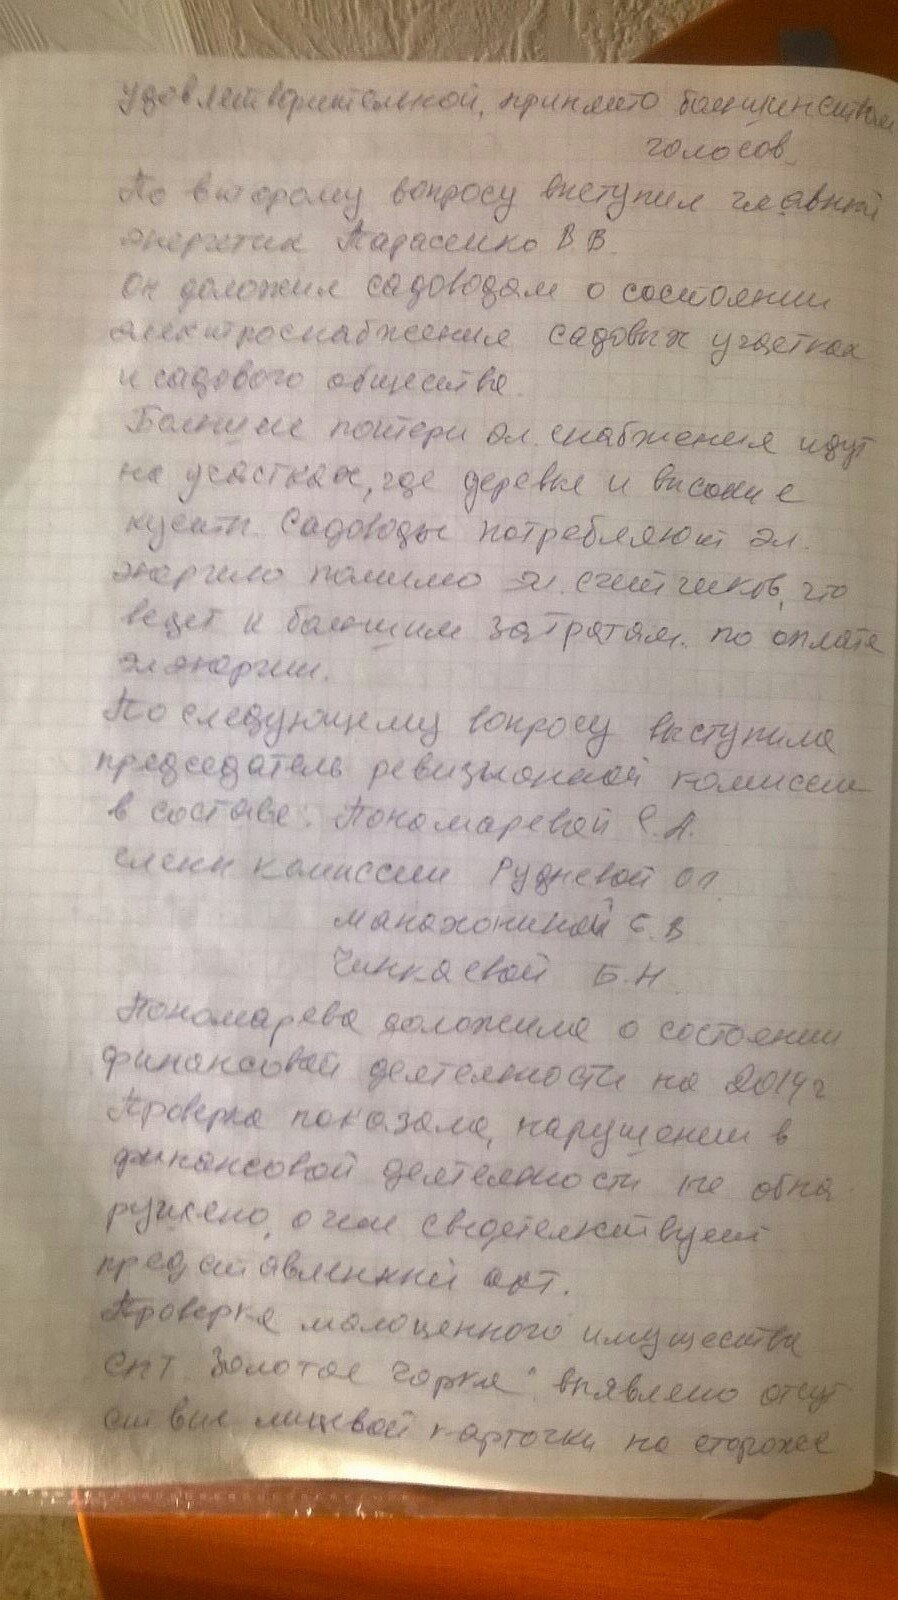 удовлетворительной, принято большинством
голосов.
По второму вопросу выступил главный
энергетик Тарасенко В В.
Он доложил садоводам о состоянии
электроснабжения садовых участках
и садового общества.
Большие потери эл. снабжения идут
на участках, где деревья и высокие
кусты. Садоводы потребляют эл.
энергию помимо эл. счетчиков, что
ведет к большим затратам. по оплате
эл энергии.
По следующему вопросу выступила
председатель ревизионной комиссии
в составе: Пономаревой С.А.
члены комиссии Рудневой
Чинкаевой Б.Н.
Пономарева доложила о состоянии
финансовой деятельности на 2014г
Проверка показала, нарушении в
финансовой деятельности не обна
ружено, о чем свидетельствует
представленный акт.
Проверка малоценного имущества
снт "Золотая горка" выявлено отсут
ствие лицевой карточки на сторожке